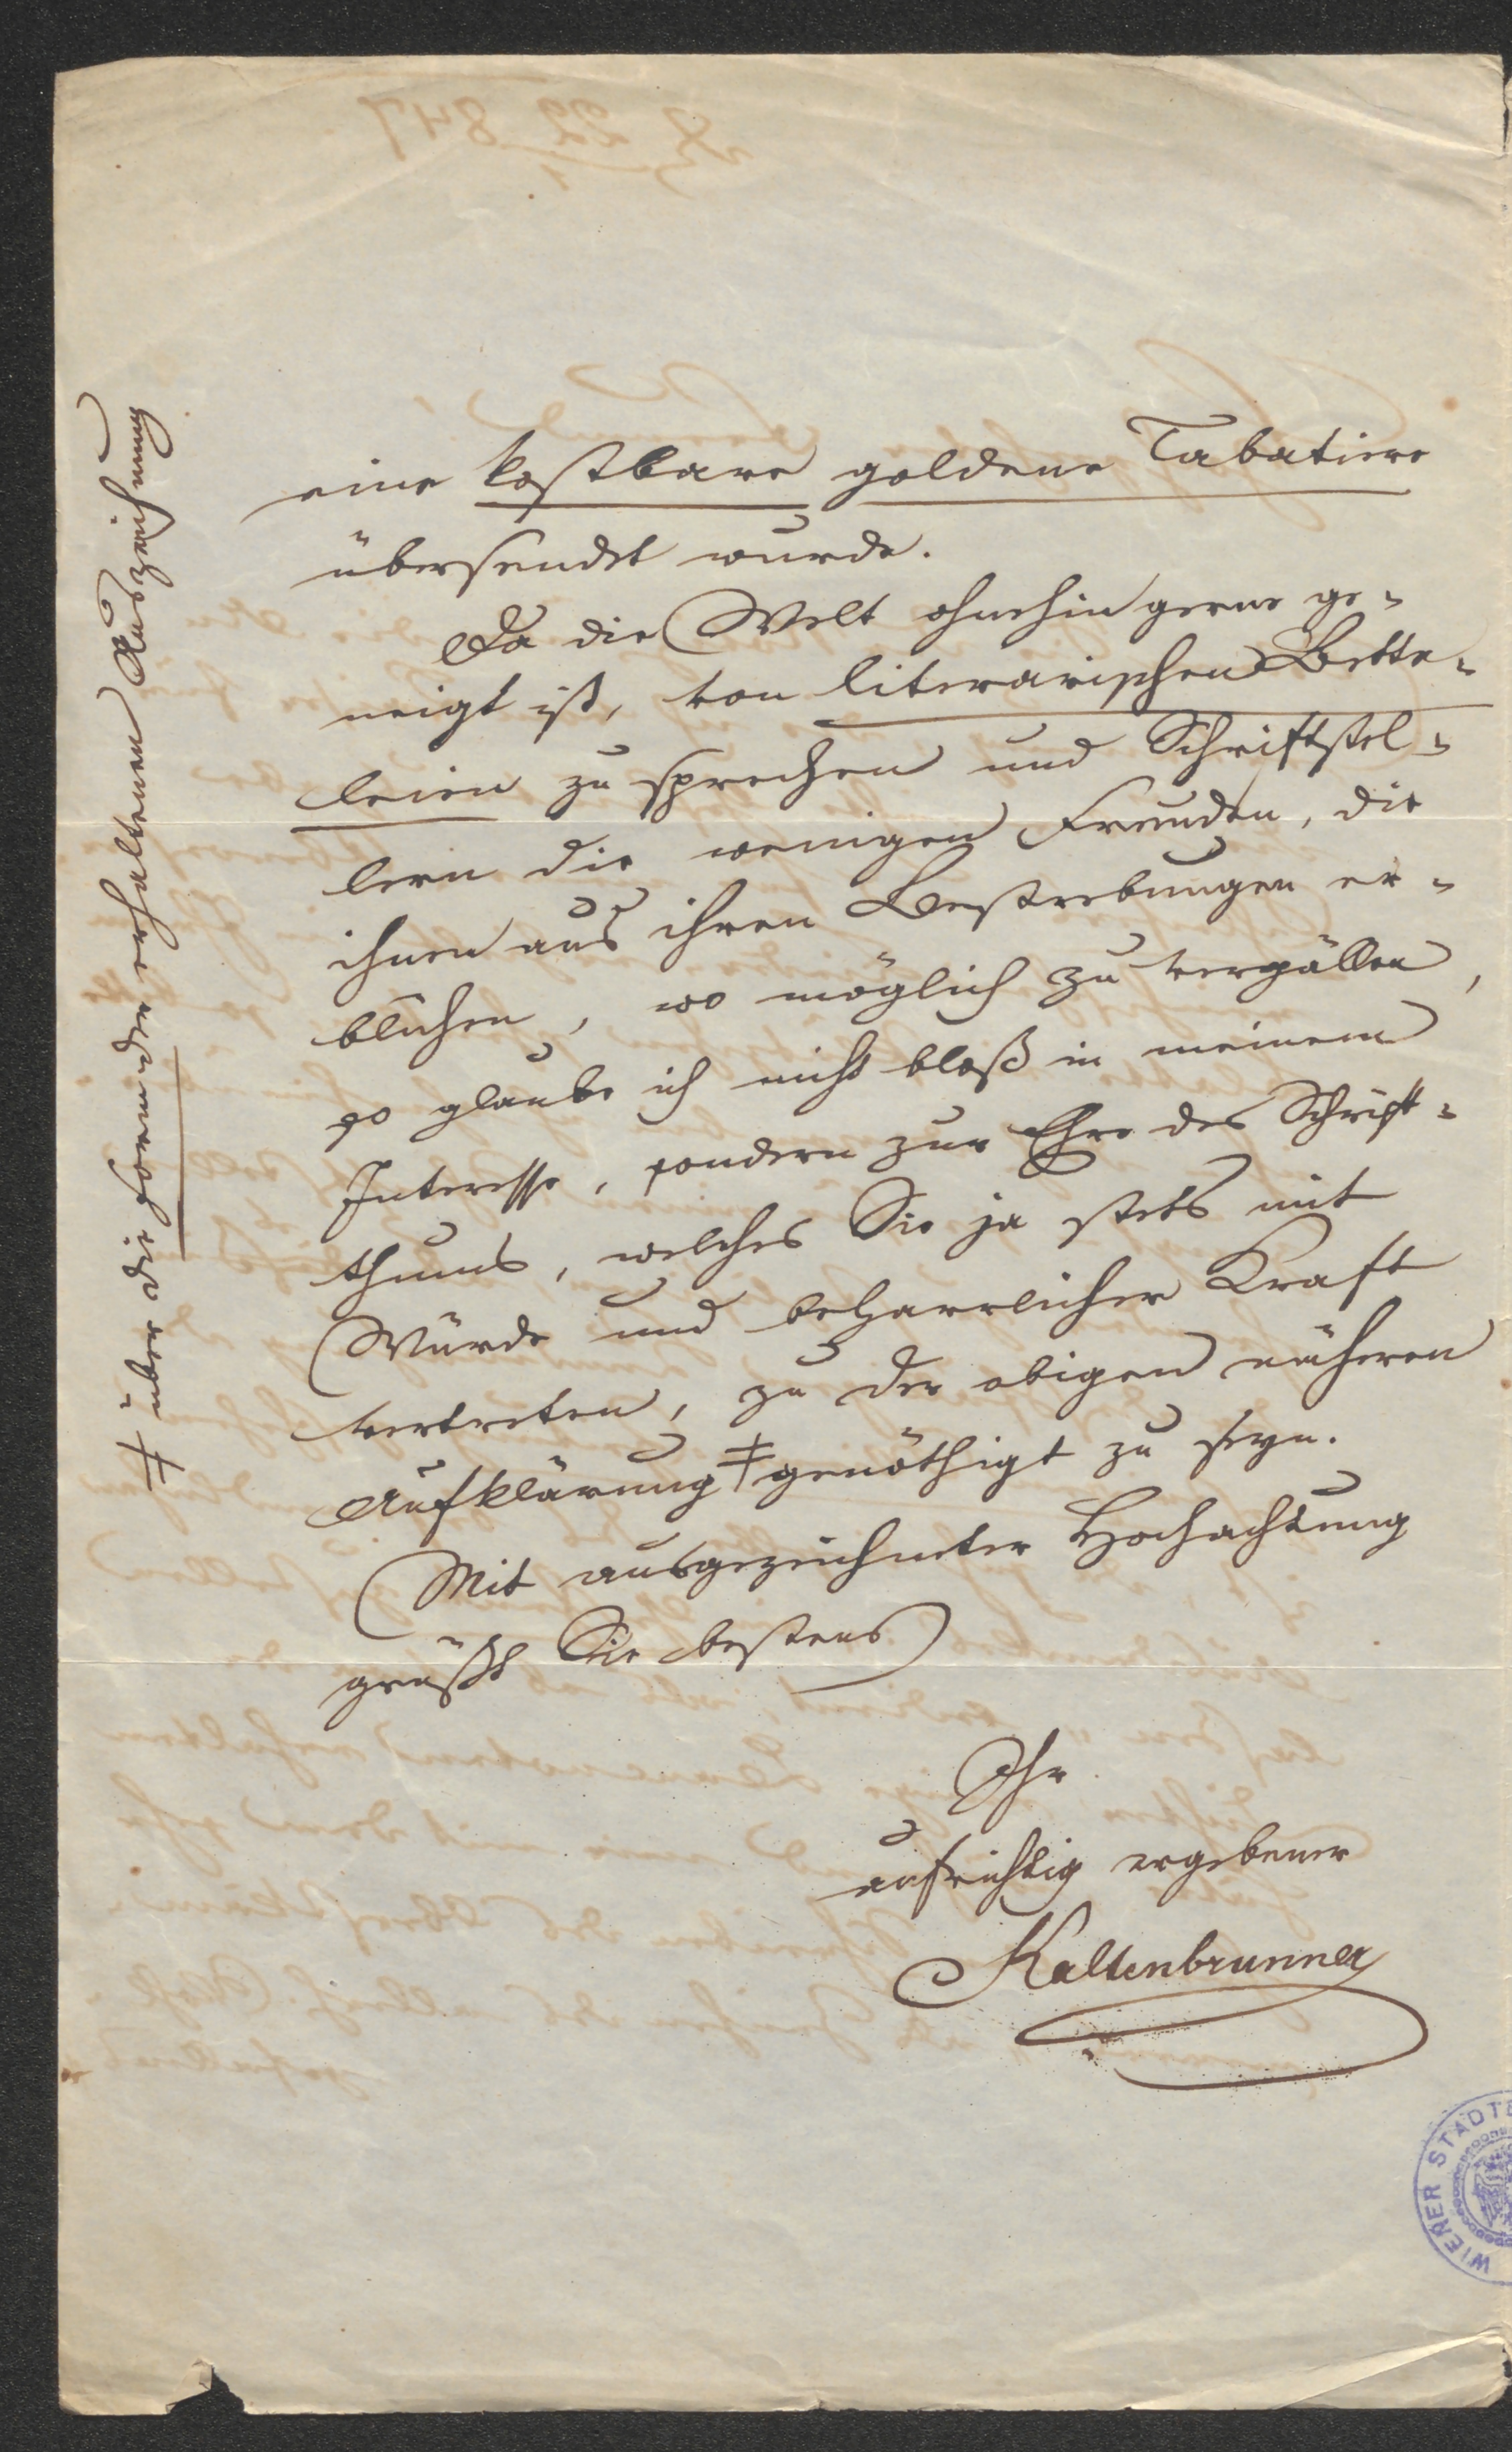 eine kostbare goldene Tabatiere
übersendet wurde.
Da die Welt ohnehin gerne ge-
neigt ist, von literarischen Bette-
leien zu sprechen und Schriftstel-
lern die wenigen Freuden, die
ihnen aus ihren Bestrebungen er-
blühen, wo möglich zu vergällen,
so glaube ich nicht bloß in meinem
Interesse, sondern zur Ehre des Schrift-
thums, welches Sie ja stets mit
Würde und beharrlicher Kraft
vertreten, zu der obigen näheren
Aufklärung ‡ genöthigt zu seyn.
Mit ausgezeichneter Hochachtung
grüßt Sie bestens
Ihr
aufrichtig ergebener
Kaltenbrunner
‡ über die Form der erhaltenen Auszeichnung
WIENER STADTB